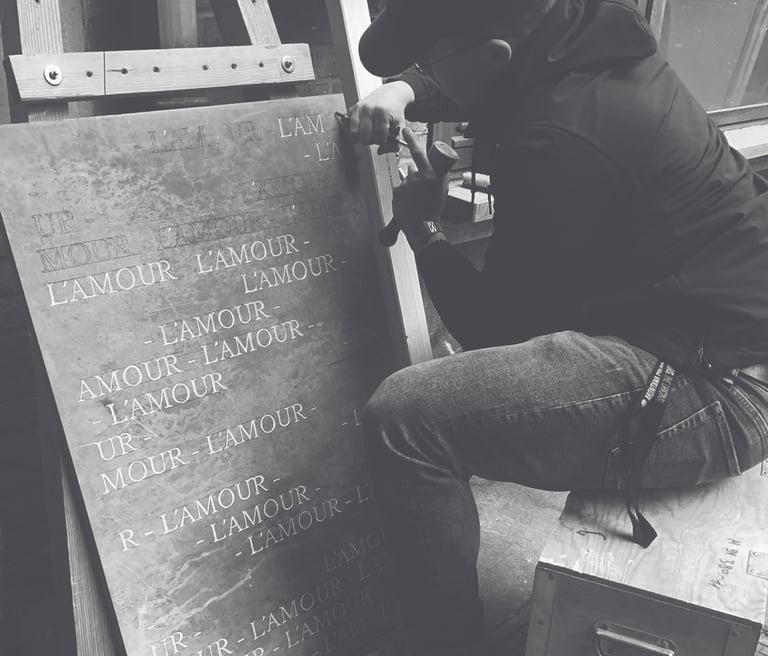 - L'AM UR L'AM
- L'A
- L'AMOUR
UR -
MOUR L'AMOUR L'AM
L'AMOUR L'AMOUR -
L'AMOUR -
- L'AMOUR -
AMOUR - L'AMOUR - -
- L'AMOUR
UR -
MOUR - L'AMOUR - - L
R - L'AMOUR -
- L'AMOUR -
- L'AMOUR - L'
L'AMO
UR - L'AMOUR - L'AM
UR - L'AMOUR - L'AMOUR